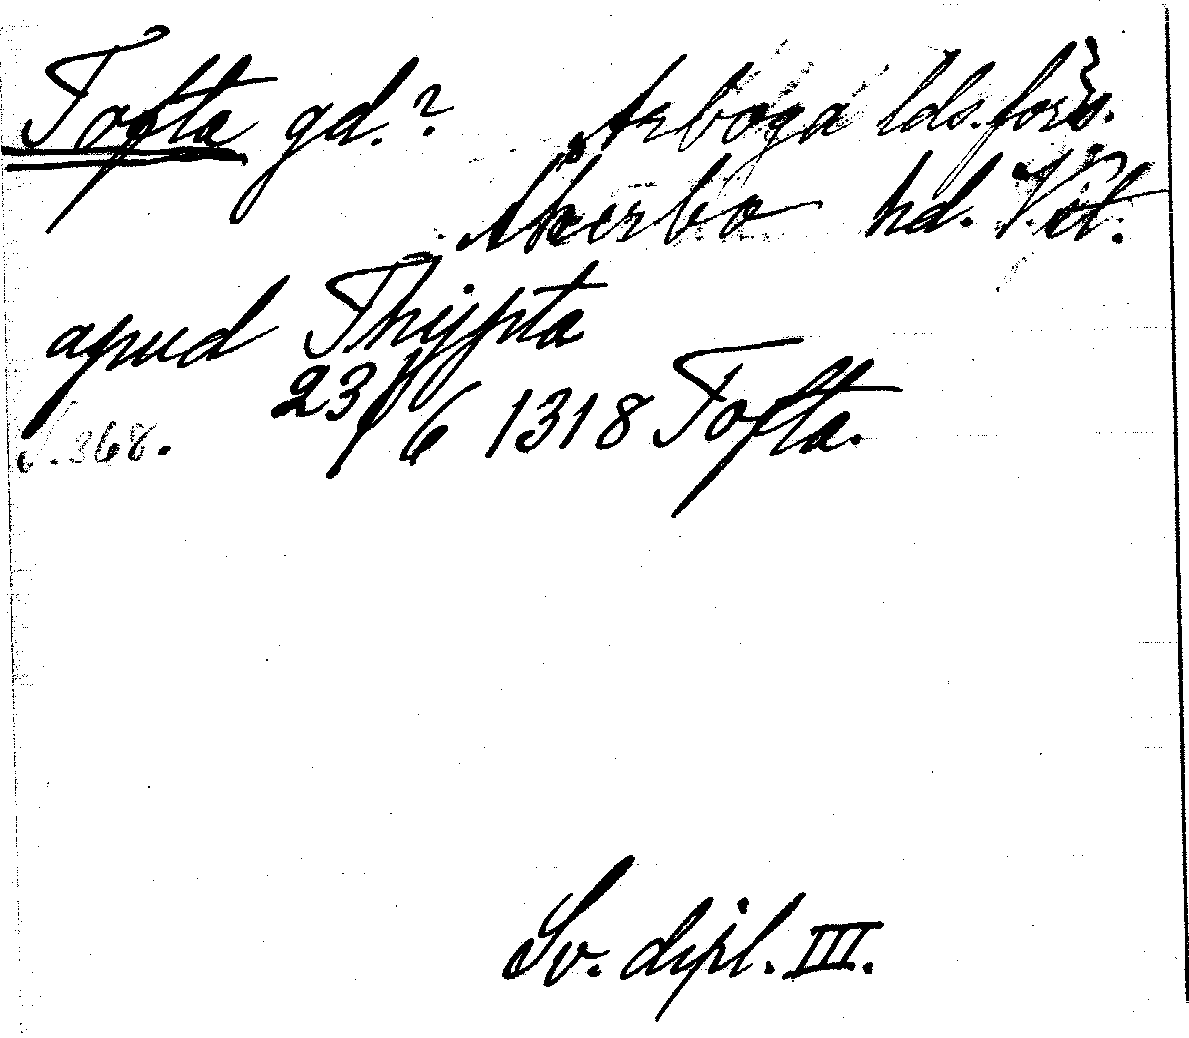 Tofta gd.? Arboga lds.förs.
Åkerbo hd. Vstl.
apud Thypta
23/6 1318 Tofta.
S. 368.
Sv. dipl. III.